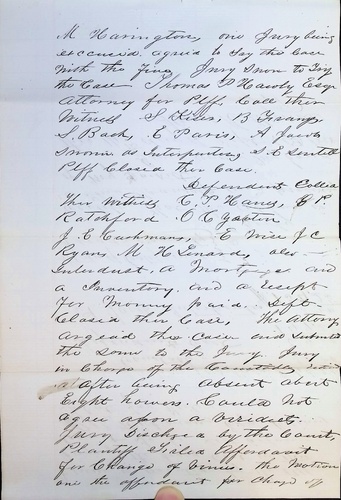 M Harington, one Jury being
excused. agred to Try the Case
with the Five Jury sworn to Try
the Case Thomas P Hawly Esqr
Attorney for Plff. Call their
Witness S Kiser, B Favang
S. Bach, C Paris, A Jacob
sworn as Interpreter, S. E
Plff Closed ther Case.
Defendent Called
Ther Witness C. P. Hanes, G R
Ratchford O C Gorton
J. C Cushmans, E Wise J C
Ryan, M H Lenard, also
Interdust. a Mortgage and
a Inventory and a recept
for Money paid. Deft
Closed ther Case, The Attorny
argued the Case and Submited
the Same to the Jury. Jury
in Charge of the Constable
at After being absent abort
Eight howers. Could Not
agree upon a Virdict.
Jury Discharged by the Court,
Plantiff Filed Affordavit
for Change of Vinue. the Motion
and the affordavit for Change of